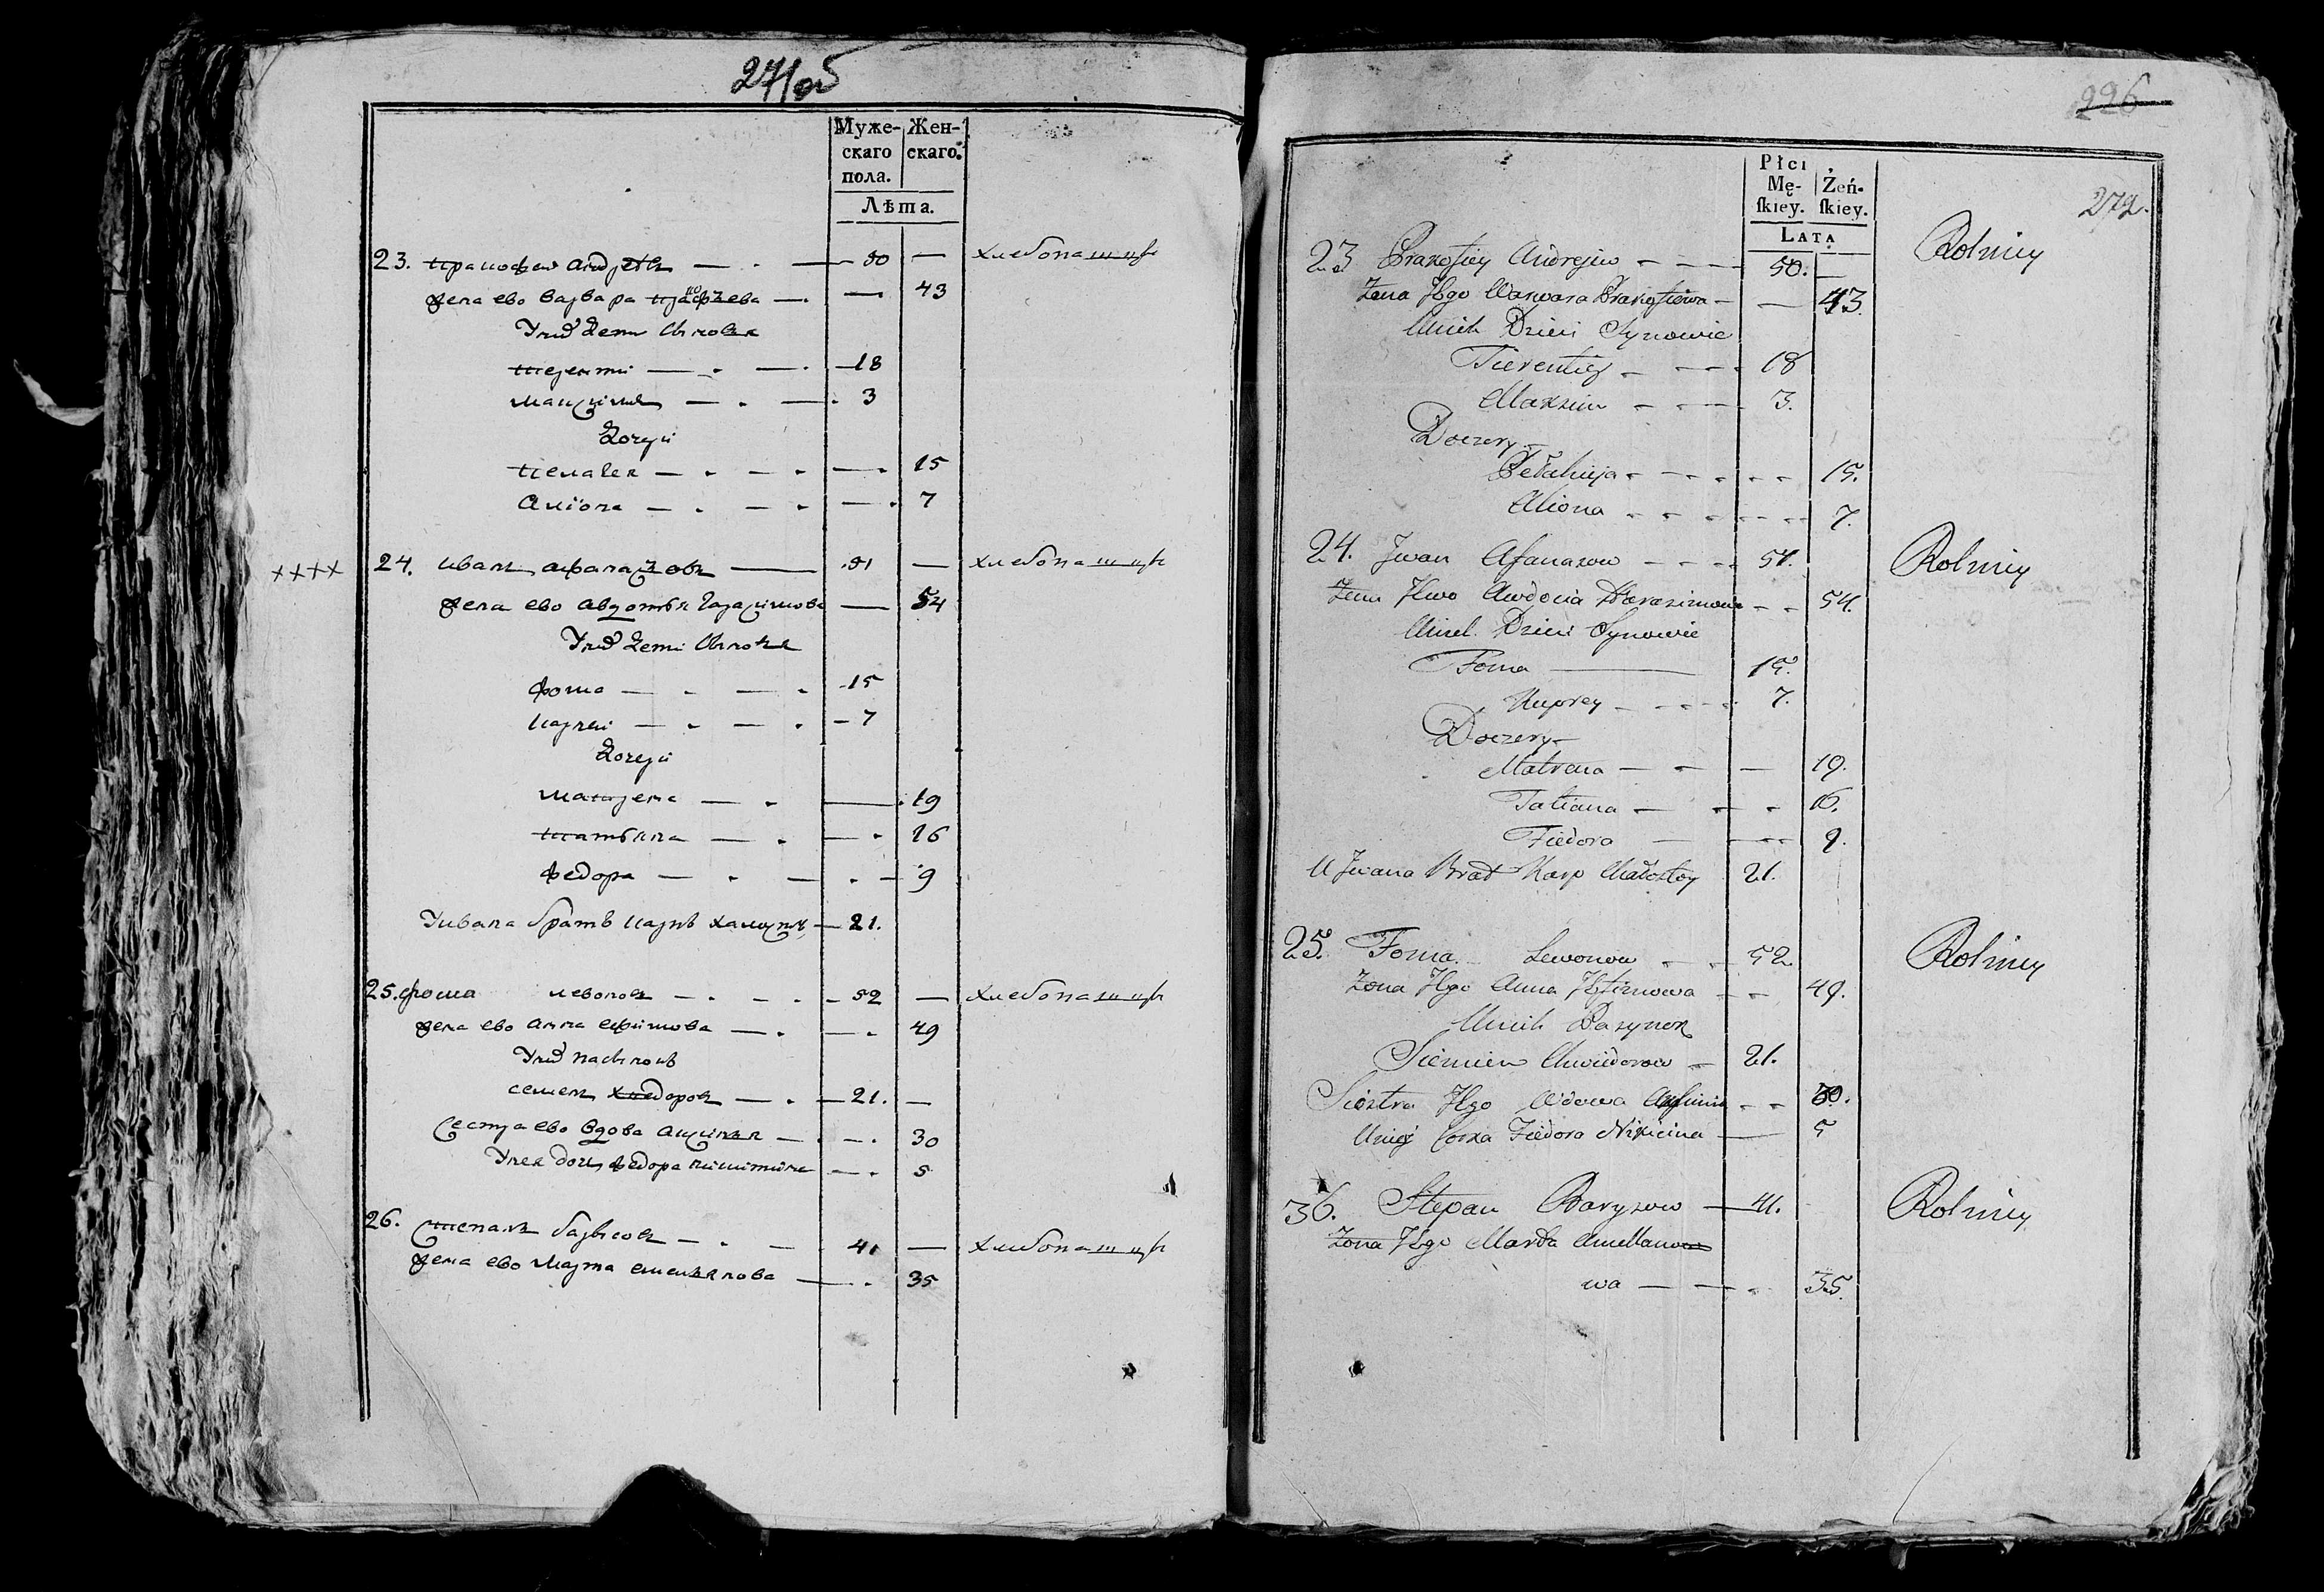 271об
Муже- Жен-
скаго скаго.
пола.
Лѣта.
23. Пракофеи Андреевъ — 50 — хлебопашцы
жена ево Варвара Пракофьева — 43
У них дети сыновья
Терентии — 18
Максимъ — 3
дочери
Пелагея — 15
Алiона — 7
×××× 24. Иванъ Афанасовъ — 51 — хлебопашцы
жена ево Авдотья Гарасимова — 54
У них дети сыновья
Фома — 15
Карпеи — 7
дочери
Матрена — 19
Татьяна — 16
Федора — 9
У Ивана братъ Карпъ — 21.
25. Фома Левоновъ — 52 — хлебопашцы
жена ево Анна Ефимова — 49
У них пасынокъ
Семенъ — 21. —
Сестра ево вдова — 30
У нея дочь Федора Никитина — 5
26. Степанъ Барысовъ — 41 — хлебопашцы
жена ево Марта Емельянова — 35
226
272.
Płci
Mę- Żeń-
ſkiey. ſkiey.
LATA
23 Prakofiey Andrejew — 50. — Rolnicy
Żena Jego Warwara Prakofiewa — 43.
U nich Dzieci Synowie
Tierentiey — 18
Maxsim — 3.
Doczery
Pełahieja — 15.
Aliona — 7.
24. Jwan Afanasow — 51. Rolnicy
Żena Jewo Awdocia Harasimowa — 54.
U nich Dzieci Synowie
Foma — 15.
Karpey — 7.
Doczery
Matrena — 19.
Tatiana — 16.
Fiedora — 9.
U Jwana Brat Karp 21.
25. Foma Lewonow — 52. Rolnicy
Żona Jego Anna Jefimowa — 49.
U nich Pasynok
Siemien — 21.
Siostra Jego Wdowa — 30.
U niej Corka Fiedora Nikicina — 5
36. Stepan Barysow — 41. Rolnicy
Żona Jego Marta
wa — 35.